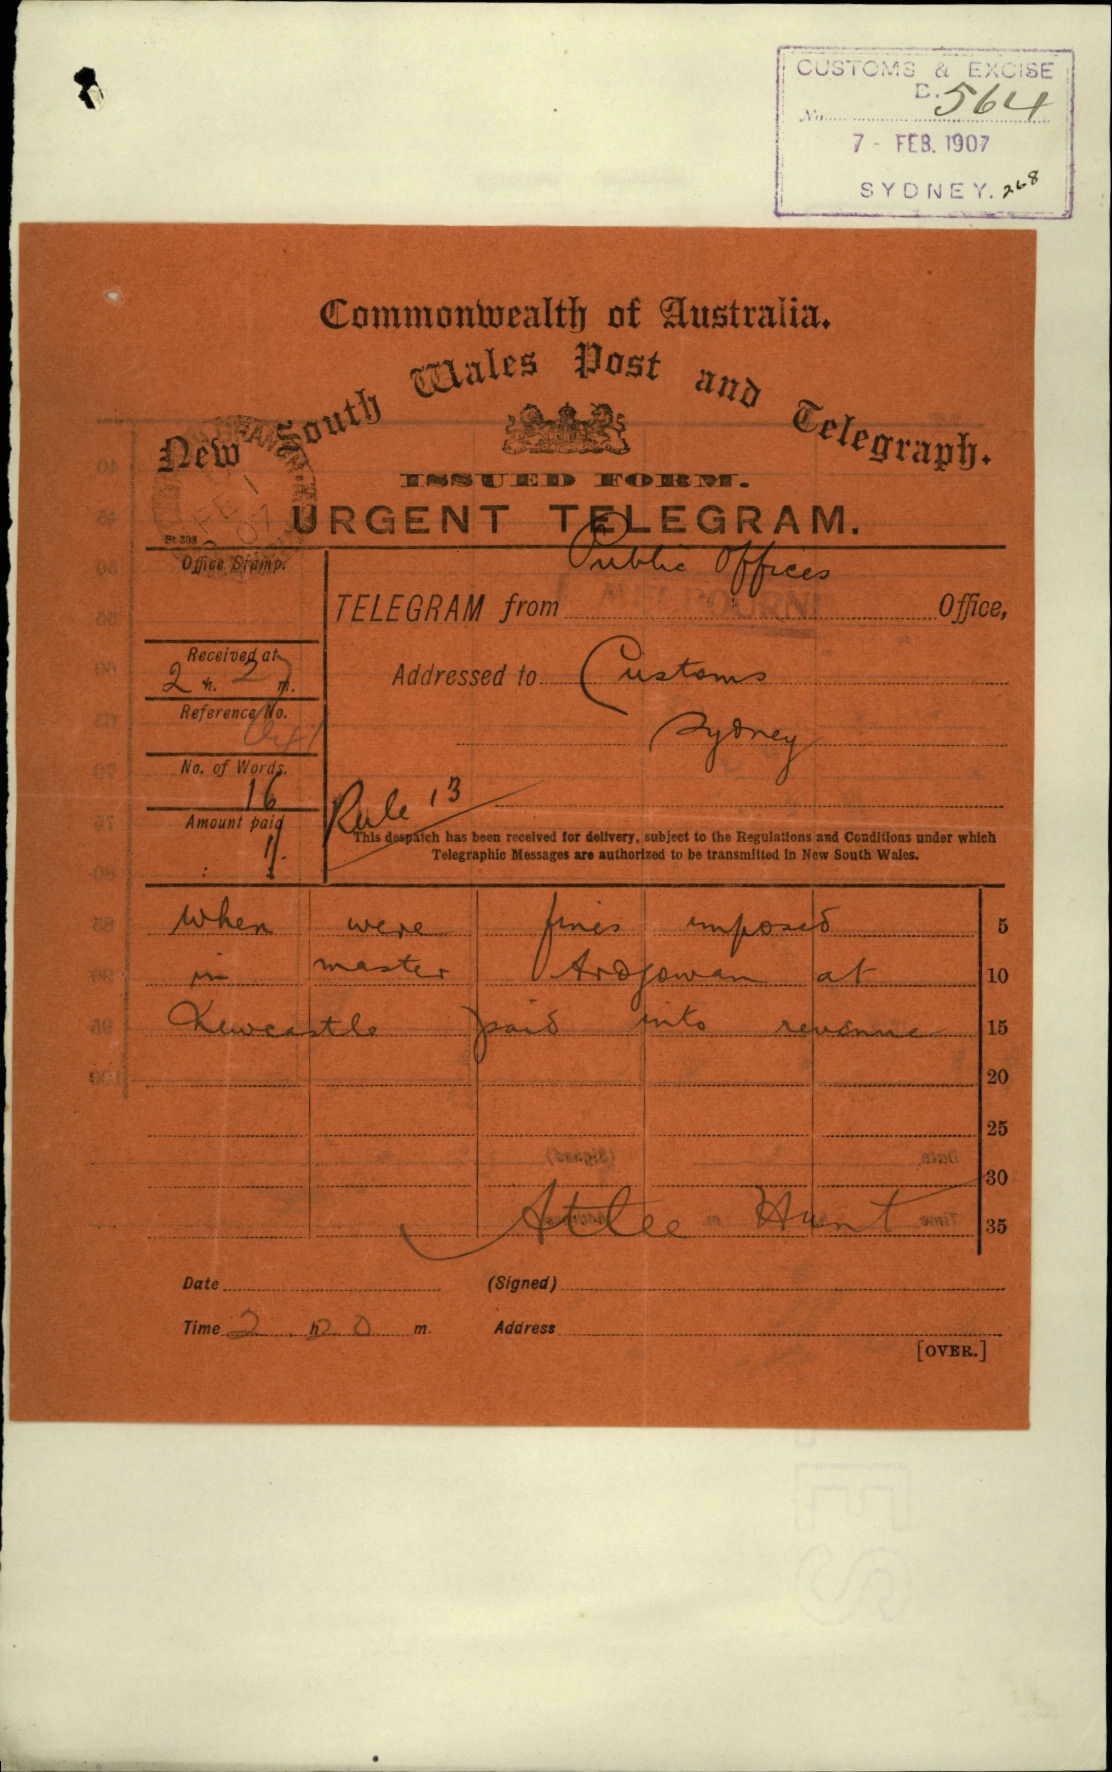 CUSTOMS & EXCISE
No. 564
7 - FEB. 1907
SYDNEY. 268
Commonwealth of Australia.
New South Wales Post and Telegraph.
ISSUED FORM.
URGENT TELEGRAM.
Public Offices
Office Stamp.
TELEGRAM from MELBOURNE Office,
Received at
2 h. 27 m.
Addressed to Customs
Reference No.
Sydney
No. of Words.
16
Rule 13
Amount paid
1/.
This despatch has been received for delivery, subject to the Regulations and Conditions under which
Telegraphic Messages are authorized to be transmitted in New South Wales.
When were fines imposed 5
in master Ardgowan at 10
Newcastle paid into revenue 15
20
25
30
Atlee Hunt 35
Date (Signed)
Time 2 h 20 m. Address
[OVER.]